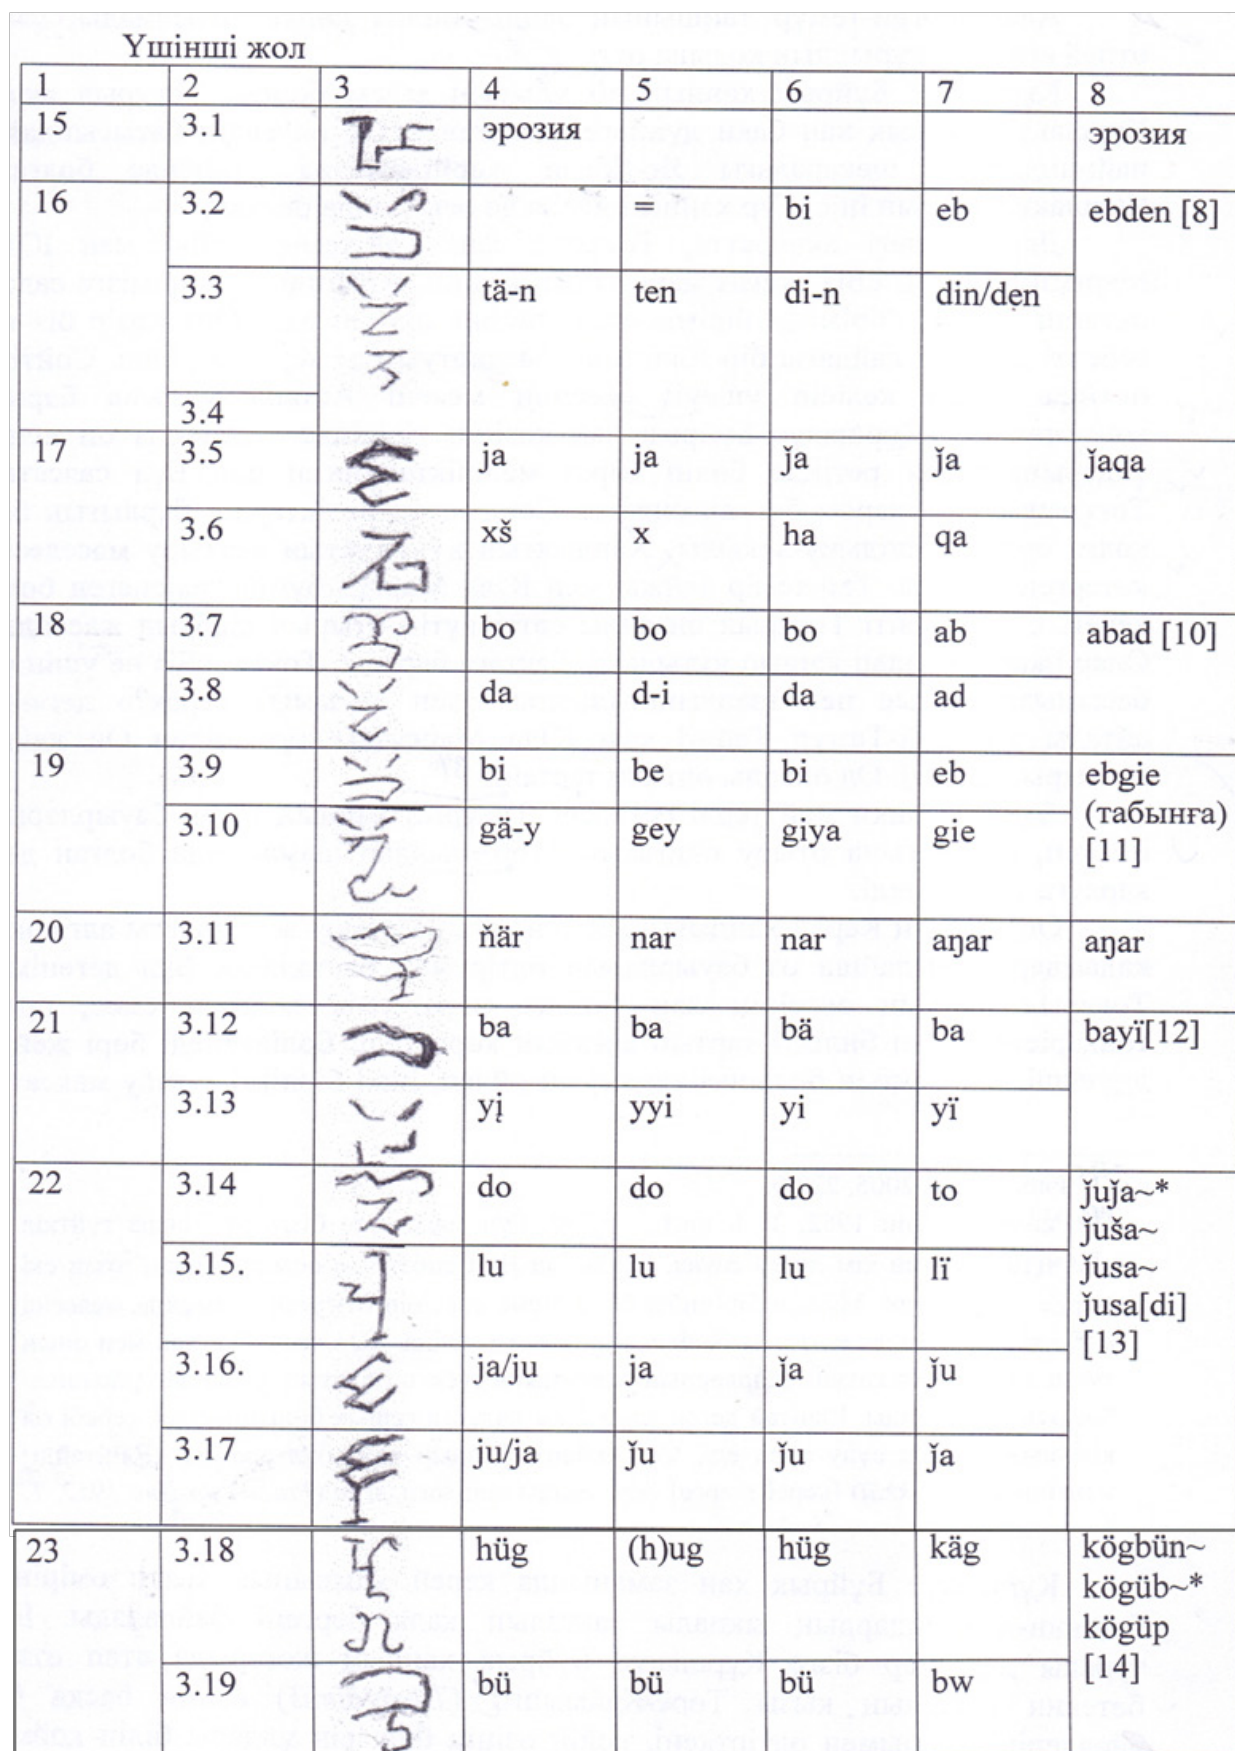 Үшінші жол
1 2 3 4 5 6 7 8
15 3.1 эрозия эрозия
16 3.2 = = bi eb ebden [8]
3.3 tä-n ten di-n din/den
3.4
17 3.5 ja ja ǰa ǰa ǰaqa
3.6 xš x ha qa
18 3.7 bo bo bo ab abad [10]
3.8 da d-i da ad
19 3.9 bi be bi eb ebgie
(табынға)
3.10 gä-y gey giya gie
[11]
20 3.11 ňär nar nar aŋar aŋar
21 3.12 ba ba bä ba bayï[12]
3.13 yi̧ yyi yi yï
22 3.14 do do do to ǰuja~*
ǰuša~
3.15. lu lu lu lï ǰusa~
ǰusa[di]
3.16 ja/ju ja ǰa ǰu [13]
3.17 ju/ja ǰu ǰu ǰa
23 3.18 hüg (h)ug hüg käg kögbün~
kögüb~*
kögüp
3.19 bü bü bü bw [14]